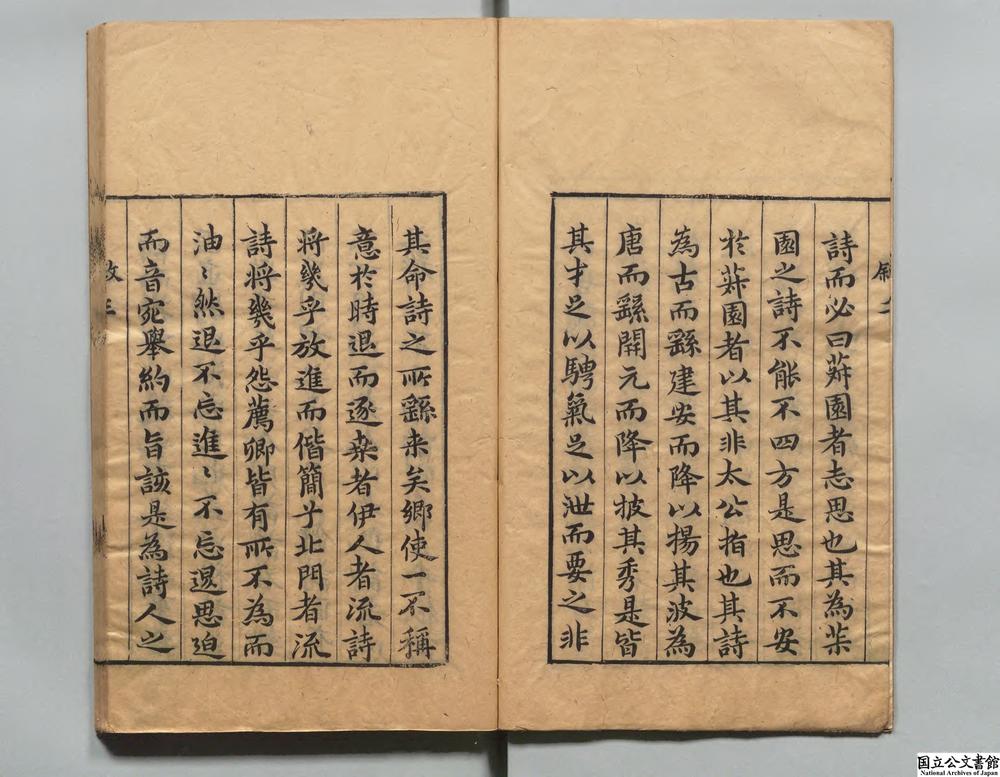 詩而必曰蓱園者志思也其為蓱
園之詩不能不四方是思而不安
於蓱園者以其非太公指也其詩
為古而繇建安而降以揚其波為
唐而繇開元而降以披其秀是皆
其才足以騁氣足以泄而要之非
其命詩之所繇来矣鄉使一不稱
意於時退而逐桒者伊人者流詩
将幾乎放進而偕簡兮北門者流
詩将幾乎怨薦卿皆有所不為而
油〻然退不忘進〻不忘退思迫
而音宛舉約而旨該是為詩人之
国立公文書館
National Archives of Japan